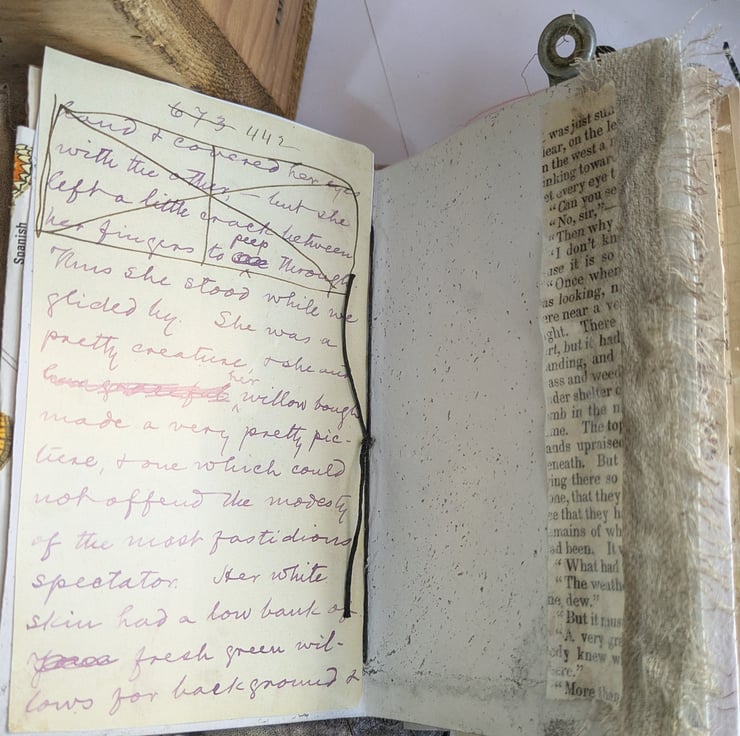 Spanish
673 442
hand & covered her eyes
with the other, — but she
left a little crack between
her fingers to peep through.
Thus she stood while we
glided by. She was a
pretty creature, & she and
her willow bough
made a very pretty pic-
ture, & one which could
not offend the modesty
of the most fastidious
spectator. Her white
skin had a low bank of
fresh green wil-
lows for background &
was just su
ear, on the le
n the west a
inking towar
et every eye t
"Can you se
"No, sir,"
"Then why
"I don't kn
use it is so
"Once when
as looking, n
ere near a ve
ght. There
rt, but it had
anding, and
ass and weed
der shelter o
mb in the n
ne. The top
ands upraised
eneath. But
ing there so
one, that they
ee that they h
mains of wh
ad been. It w
"What had
"The weath
ne, dew."
"But it mus
"A very gre
dy knew w
ere."
"More than